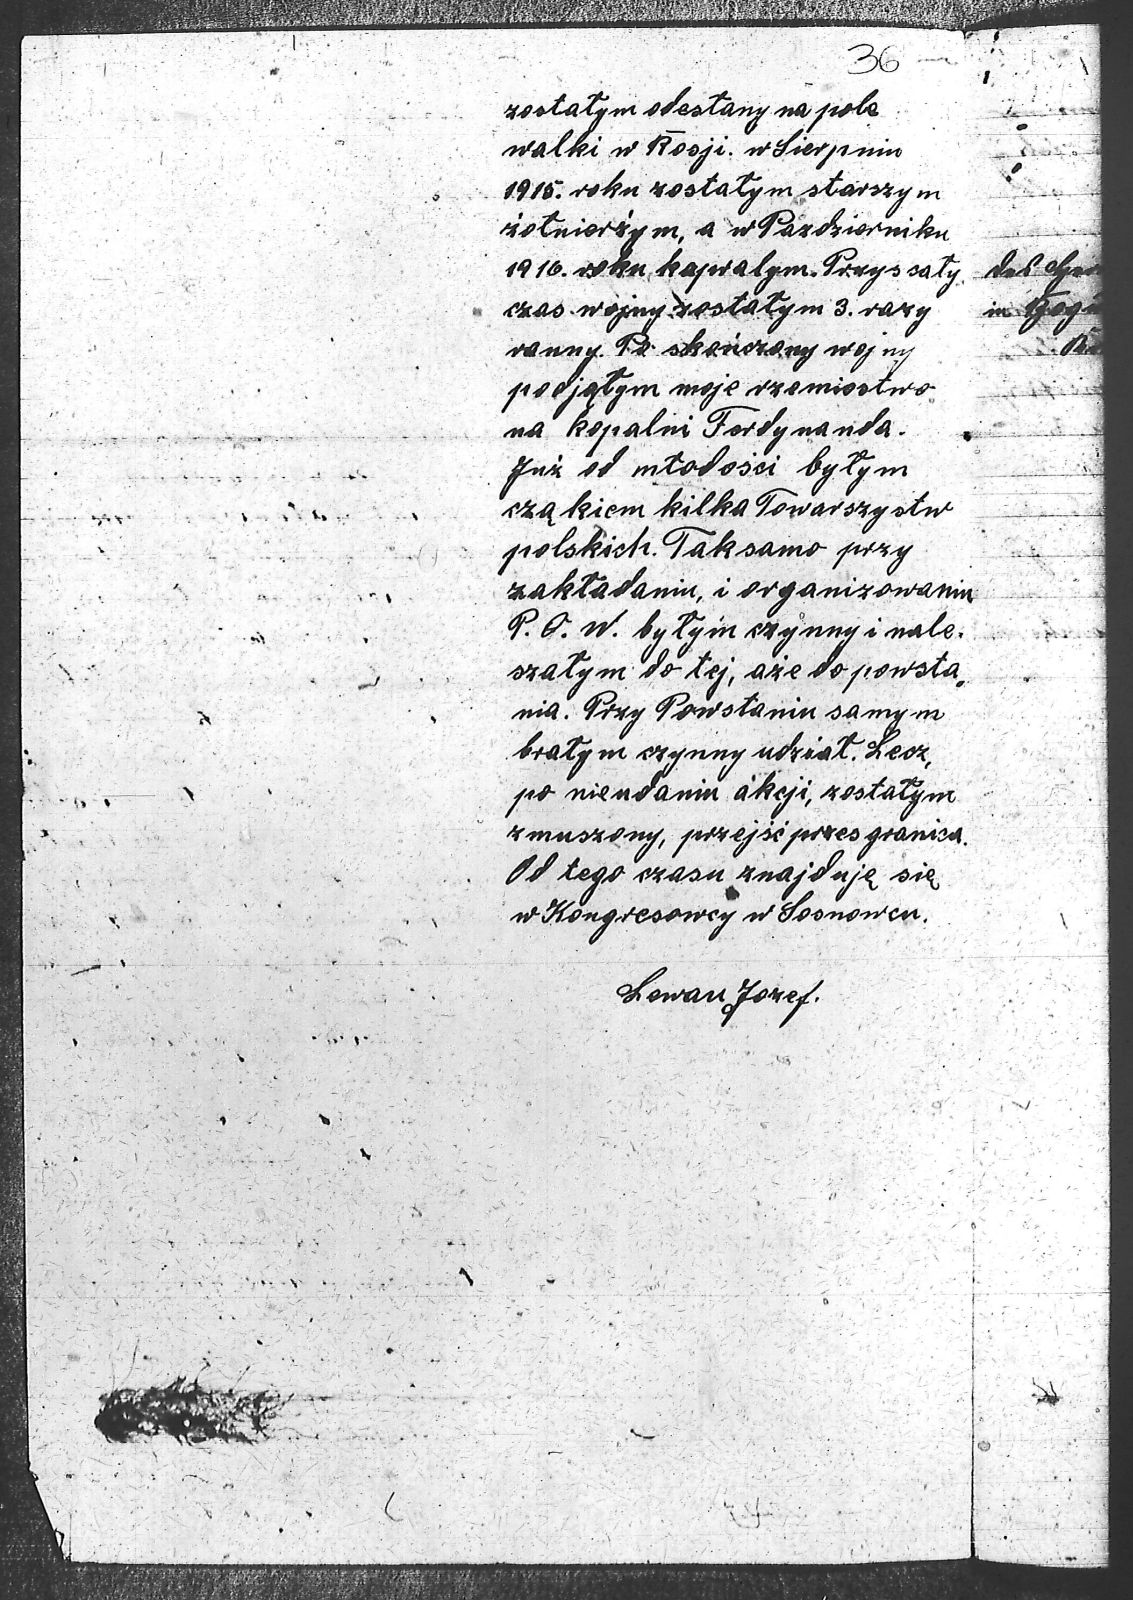 36
zostałym odesłany na pole
walki w Rosji. w Sierpniu
1915. roku zostałym starszym
żołnierżym, a w Pazdzierniku
1916. roku kapralym. Przys cały
czas wojny zostałym 3. razy
ranny. Po skończony wojny
podjąłym moje rzemiostwo
na kopalni Ferdynanda.
Już od młodości byłym
cząkiem kilka Towarszystw
polskich. Tak samo przy
zakładaniu, i organizowaniu
P. O. W. byłym czynny i nale-
szałym do tej, aże do powsta-
nia. Przy Powstaniu samym
brałym czynny udział. Lecz,
po nieudaniu akcji, zostałym
zmuszony, przejść przes granica.
Od tego czasu znajduję się
w Kongresowcy w Sosnowcu.
Lewan Jozef.
des
in